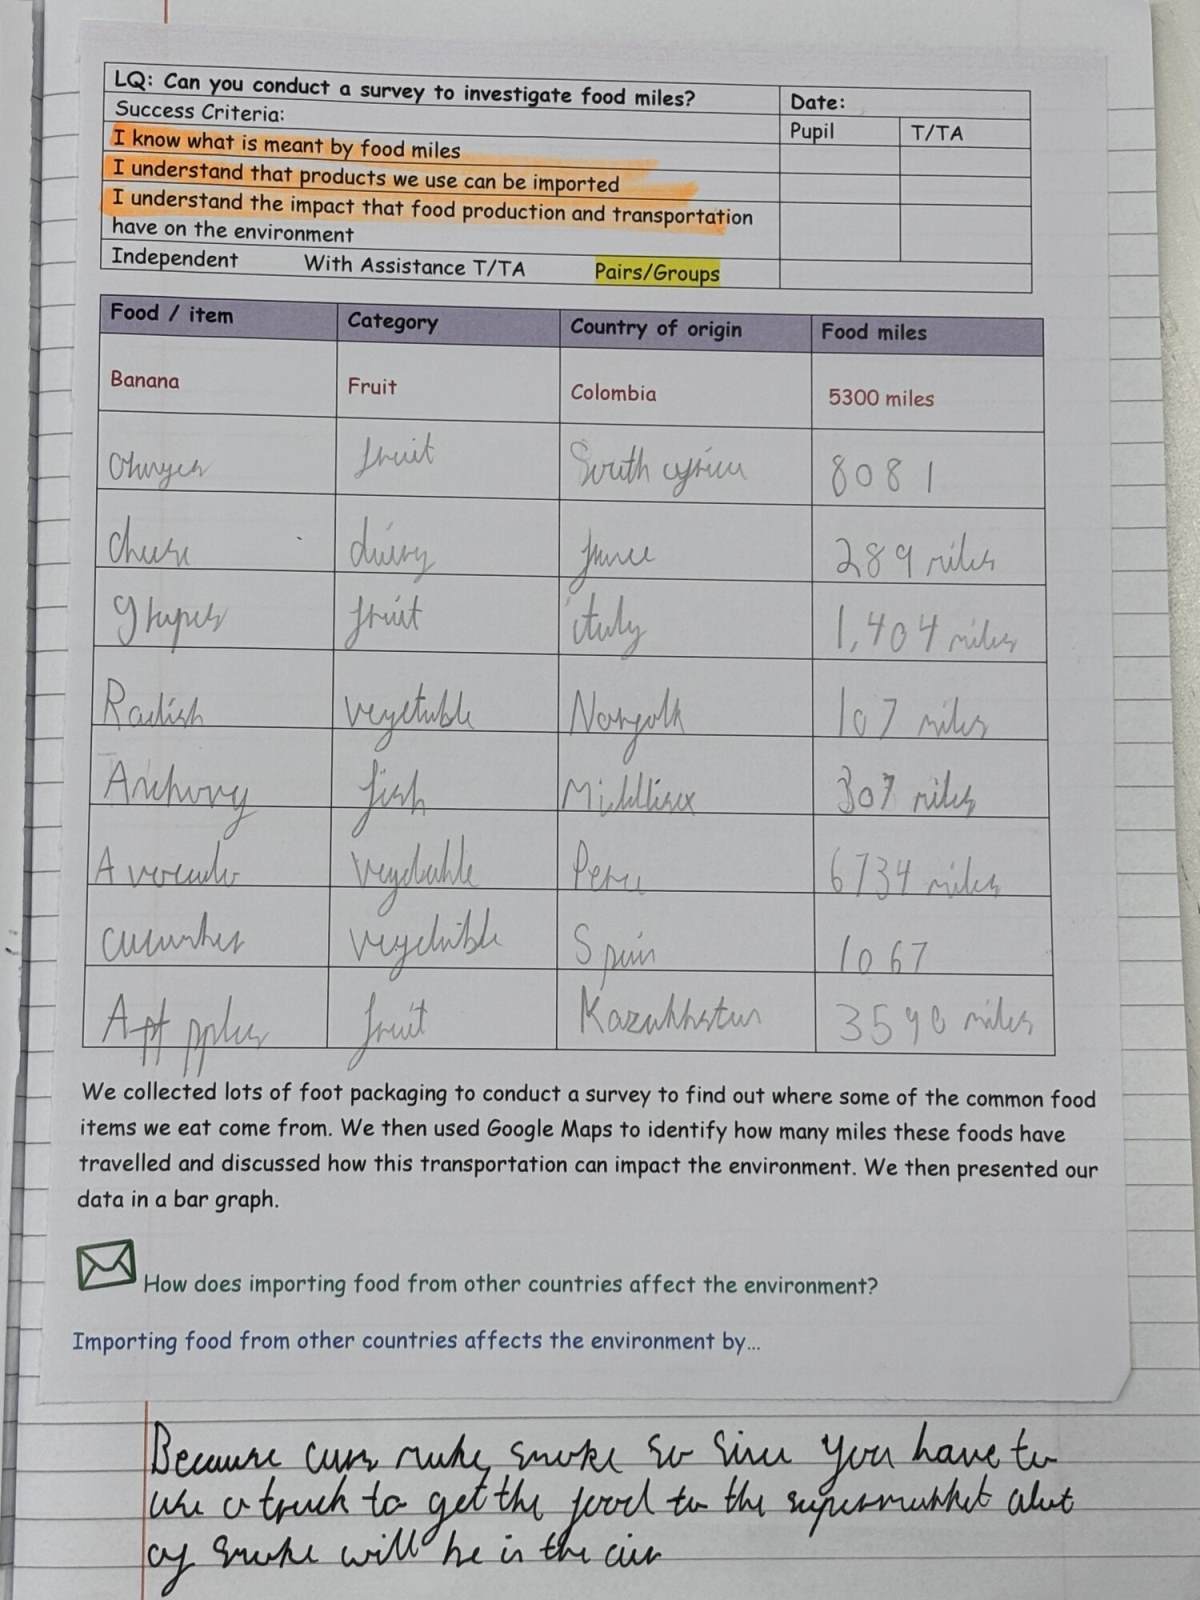 LQ: Can you conduct a survey to investigate food miles? Date:
Success Criteria: Pupil T/TA
I know what is meant by food miles
I understand that products we use can be imported
I understand the impact that food production and transportation
have on the environment
Independent With Assistance T/TA Pairs/Groups
Food / item Category Country of origin Food miles
Banana Fruit Colombia 5300 miles
Oranges fruit South africa 8081
cheese dairy france 289 miles
grapes fruit italy 1,404 miles
Radish vegetable Norfolk 107 miles
Anchovy fish Middlisex 307 miles
Avocado vegetable Peru 6734 miles
cucumber vegetable Spain 1067
Apples fruit Kazakhstan 3590 miles
We collected lots of foot packaging to conduct a survey to find out where some of the common food
items we eat come from. We then used Google Maps to identify how many miles these foods have
travelled and discussed how this transportation can impact the environment. We then presented our
data in a bar graph.
How does importing food from other countries affect the environment?
Importing food from other countries affects the environment by...
Because cars make smoke so sinc you have to
use a truck to get the food to the supermarket alot
of smoke will be in the air